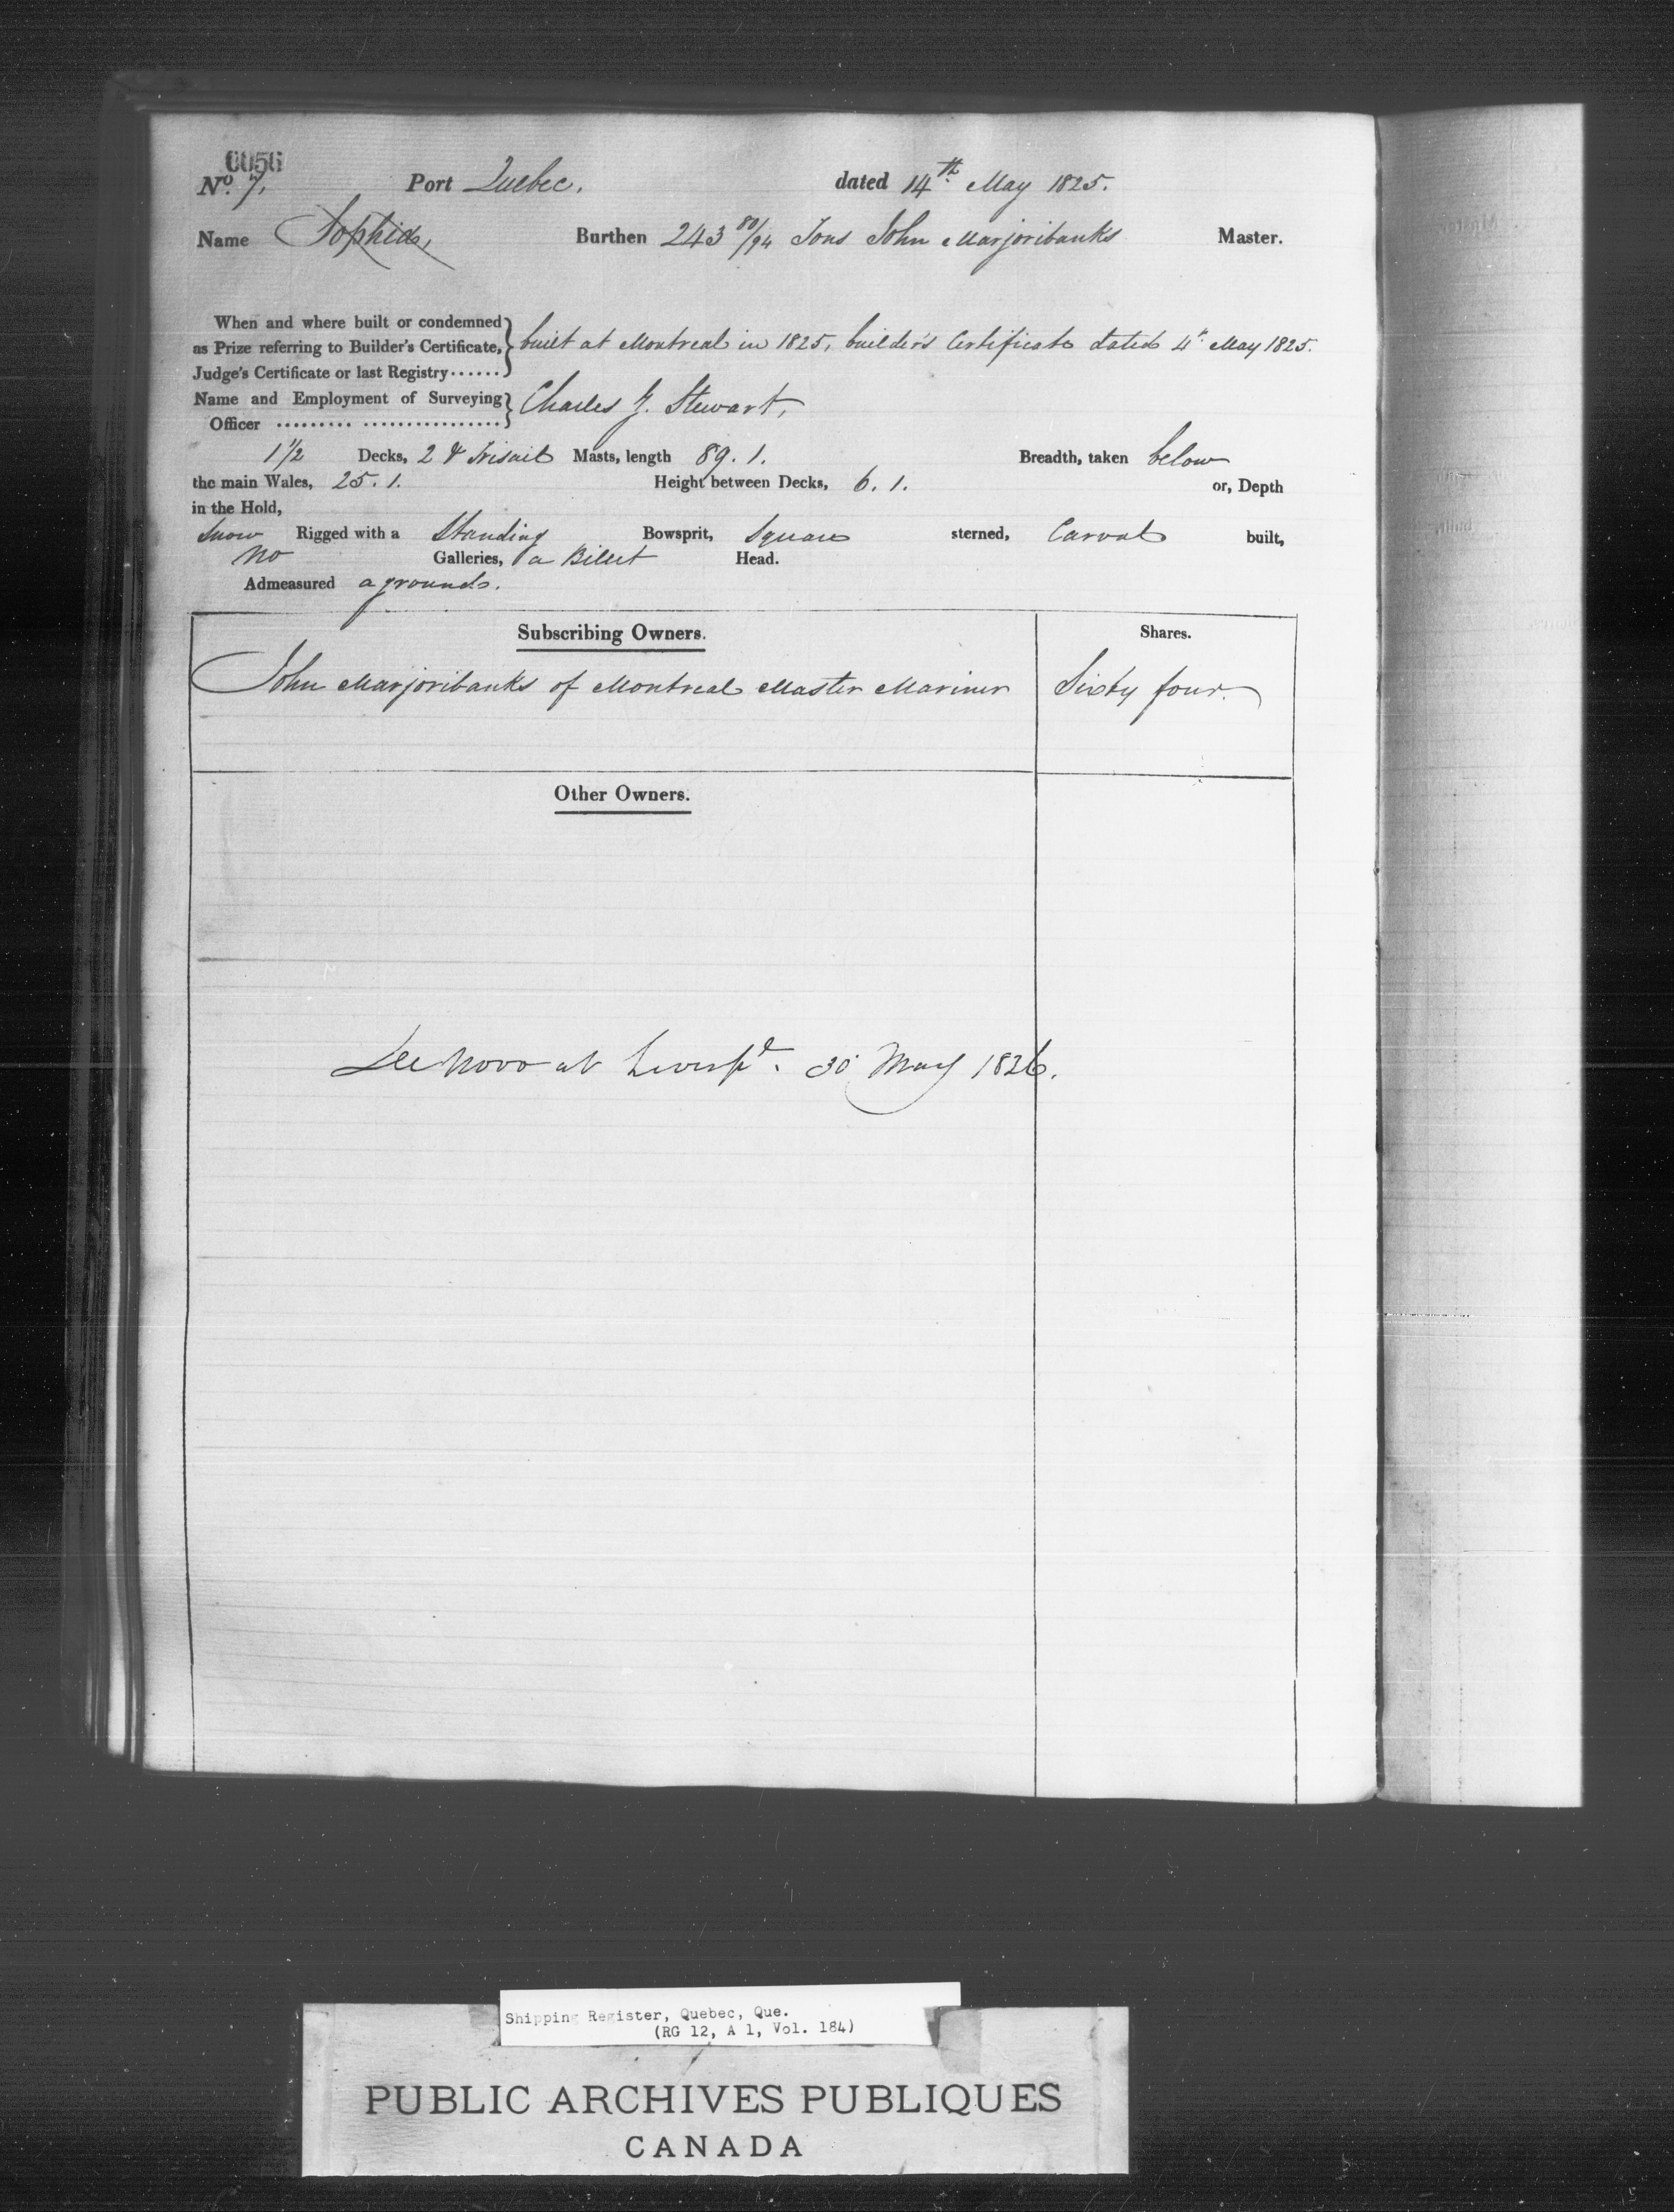 0056
No. 7, Port Quebec, dated 14th May 1825.
Name Sophia, Burthen 243 80/94 Tons John Marjoribanks Master.
When and where built or condemned
as Prize referring to Builder's Certificate, built at Montreal in 1825, builder's Certificate dated 4th May 1825.
Judge's Certificate or last Registry......
Name and Employment of Surveying Charles G. Stewart,
Officer ......... ................
1 1/2 Decks, 2 & Trisail Masts, length 89. 1. Breadth, taken below
the main Wales, 25. 1. Height between Decks, 6. 1. or, Depth
in the Hold,
Snow Rigged with a Standing Bowsprit, Square sterned, Carvel built,
No Galleries, a Billet Head.
Admeasured aground.
Subscribing Owners. Shares.
John Marjoribanks of Montreal Master Mariner Sixty four.
Other Owners.
De Novo at Liverpl. 30 May 1826.
Shipping Register, Quebec, Que.
(RG 12, A 1, Vol. 184)
PUBLIC ARCHIVES PUBLIQUES
CANADA